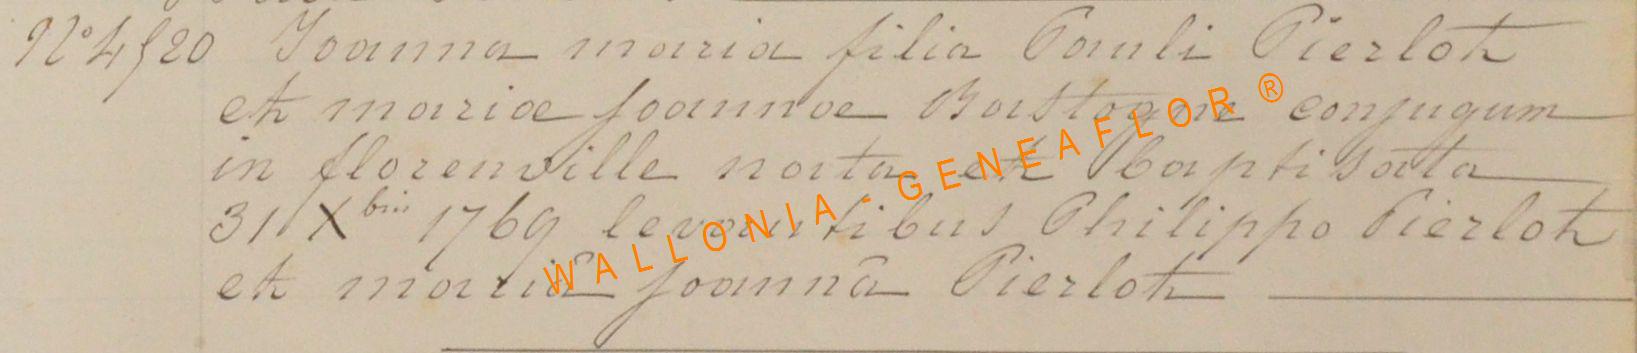 N° 4 f 20 Joanna maria filia Pauli Pierlot
et mariæ Joannæ Bastogne conjugum
in florenville nata et baptisata
31 Xbris 1769 levantibus Philippo Pierlot
et mariâ Joannâ Pierlot
WALLONIA - GENEAFLOR ®